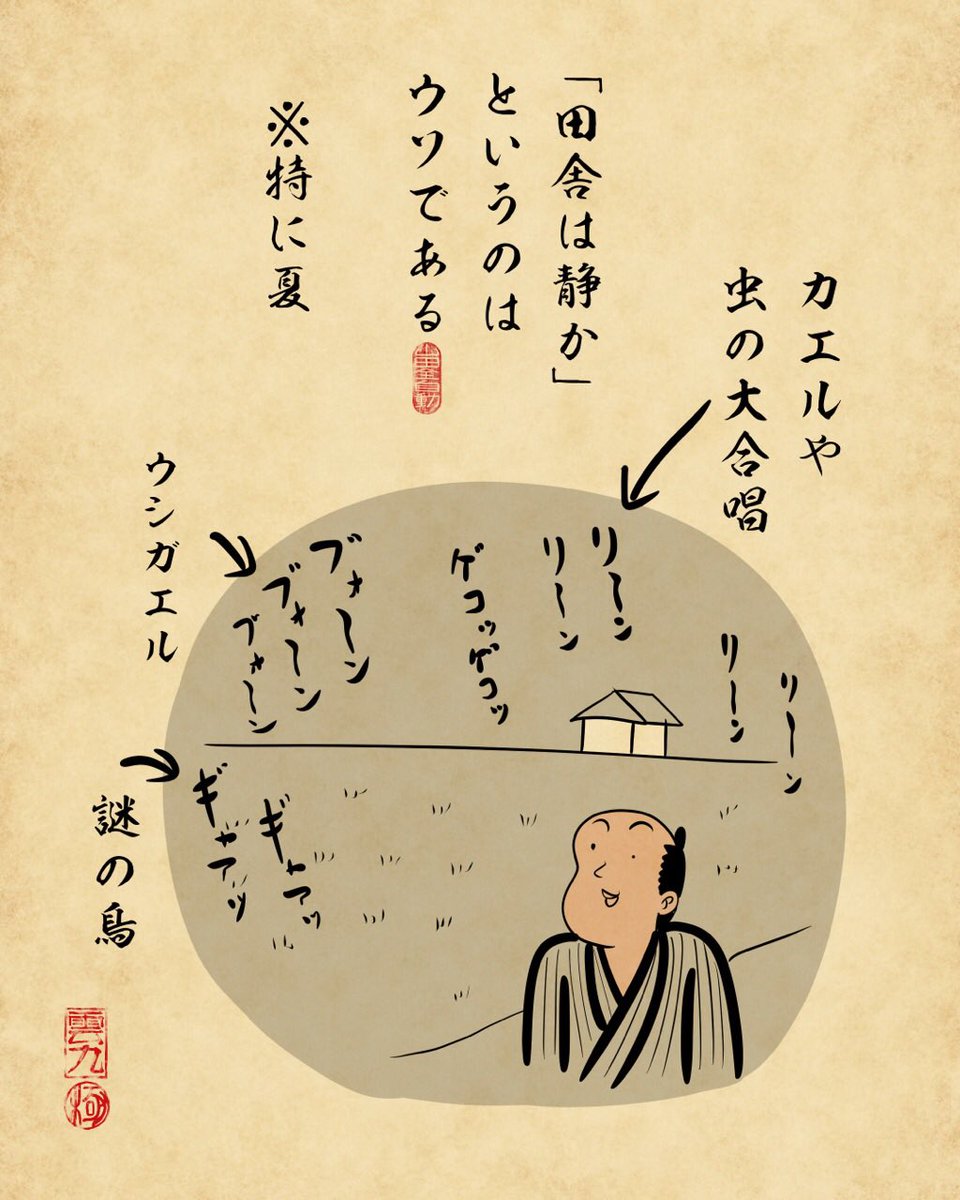 「田舎は静か」
というのは
ウソである
※特に夏
カエルや
虫の大合唱
リーーン
リーーン
リーーン
リーーン
ゲコッゲコッ
ウシガエル
ブォーーン
ブォーーン
ブォーーン
謎の鳥
ギャアッ
ギャアッ